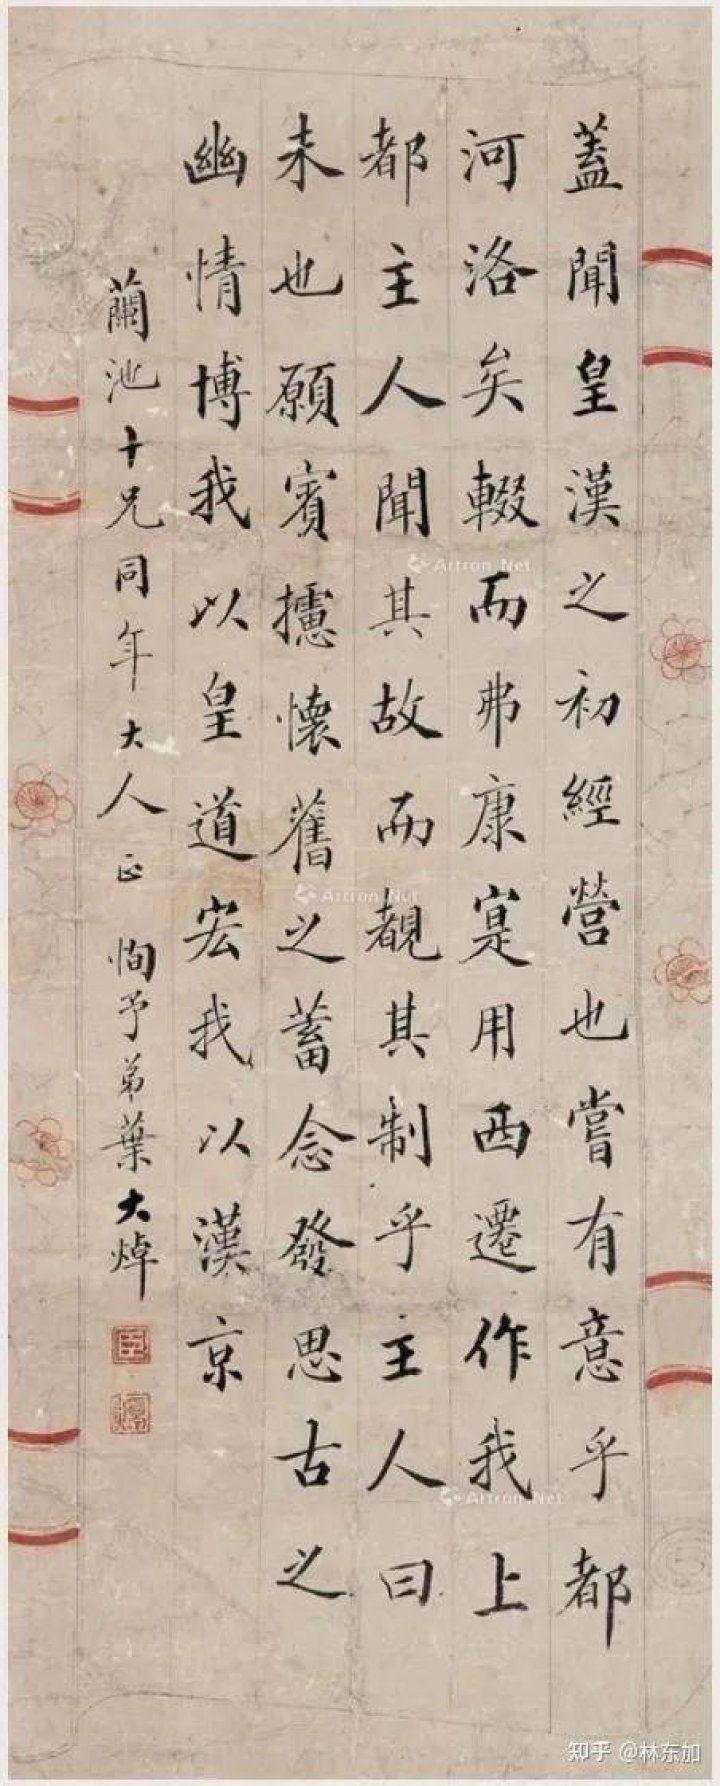 蓋聞皇漢之初經營也嘗有意乎都
河洛矣輟而弗康寔用西遷作我上
都主人聞其故而覩其制乎主人曰
未也願賓攄懷舊之蓄念發思古之
幽情博我以皇道宏我以漢京
蘭池十兄同年大人正 恂予弟葉大焯
Artron.Net
Artron.Net
Artron.Net
知乎 @林东加